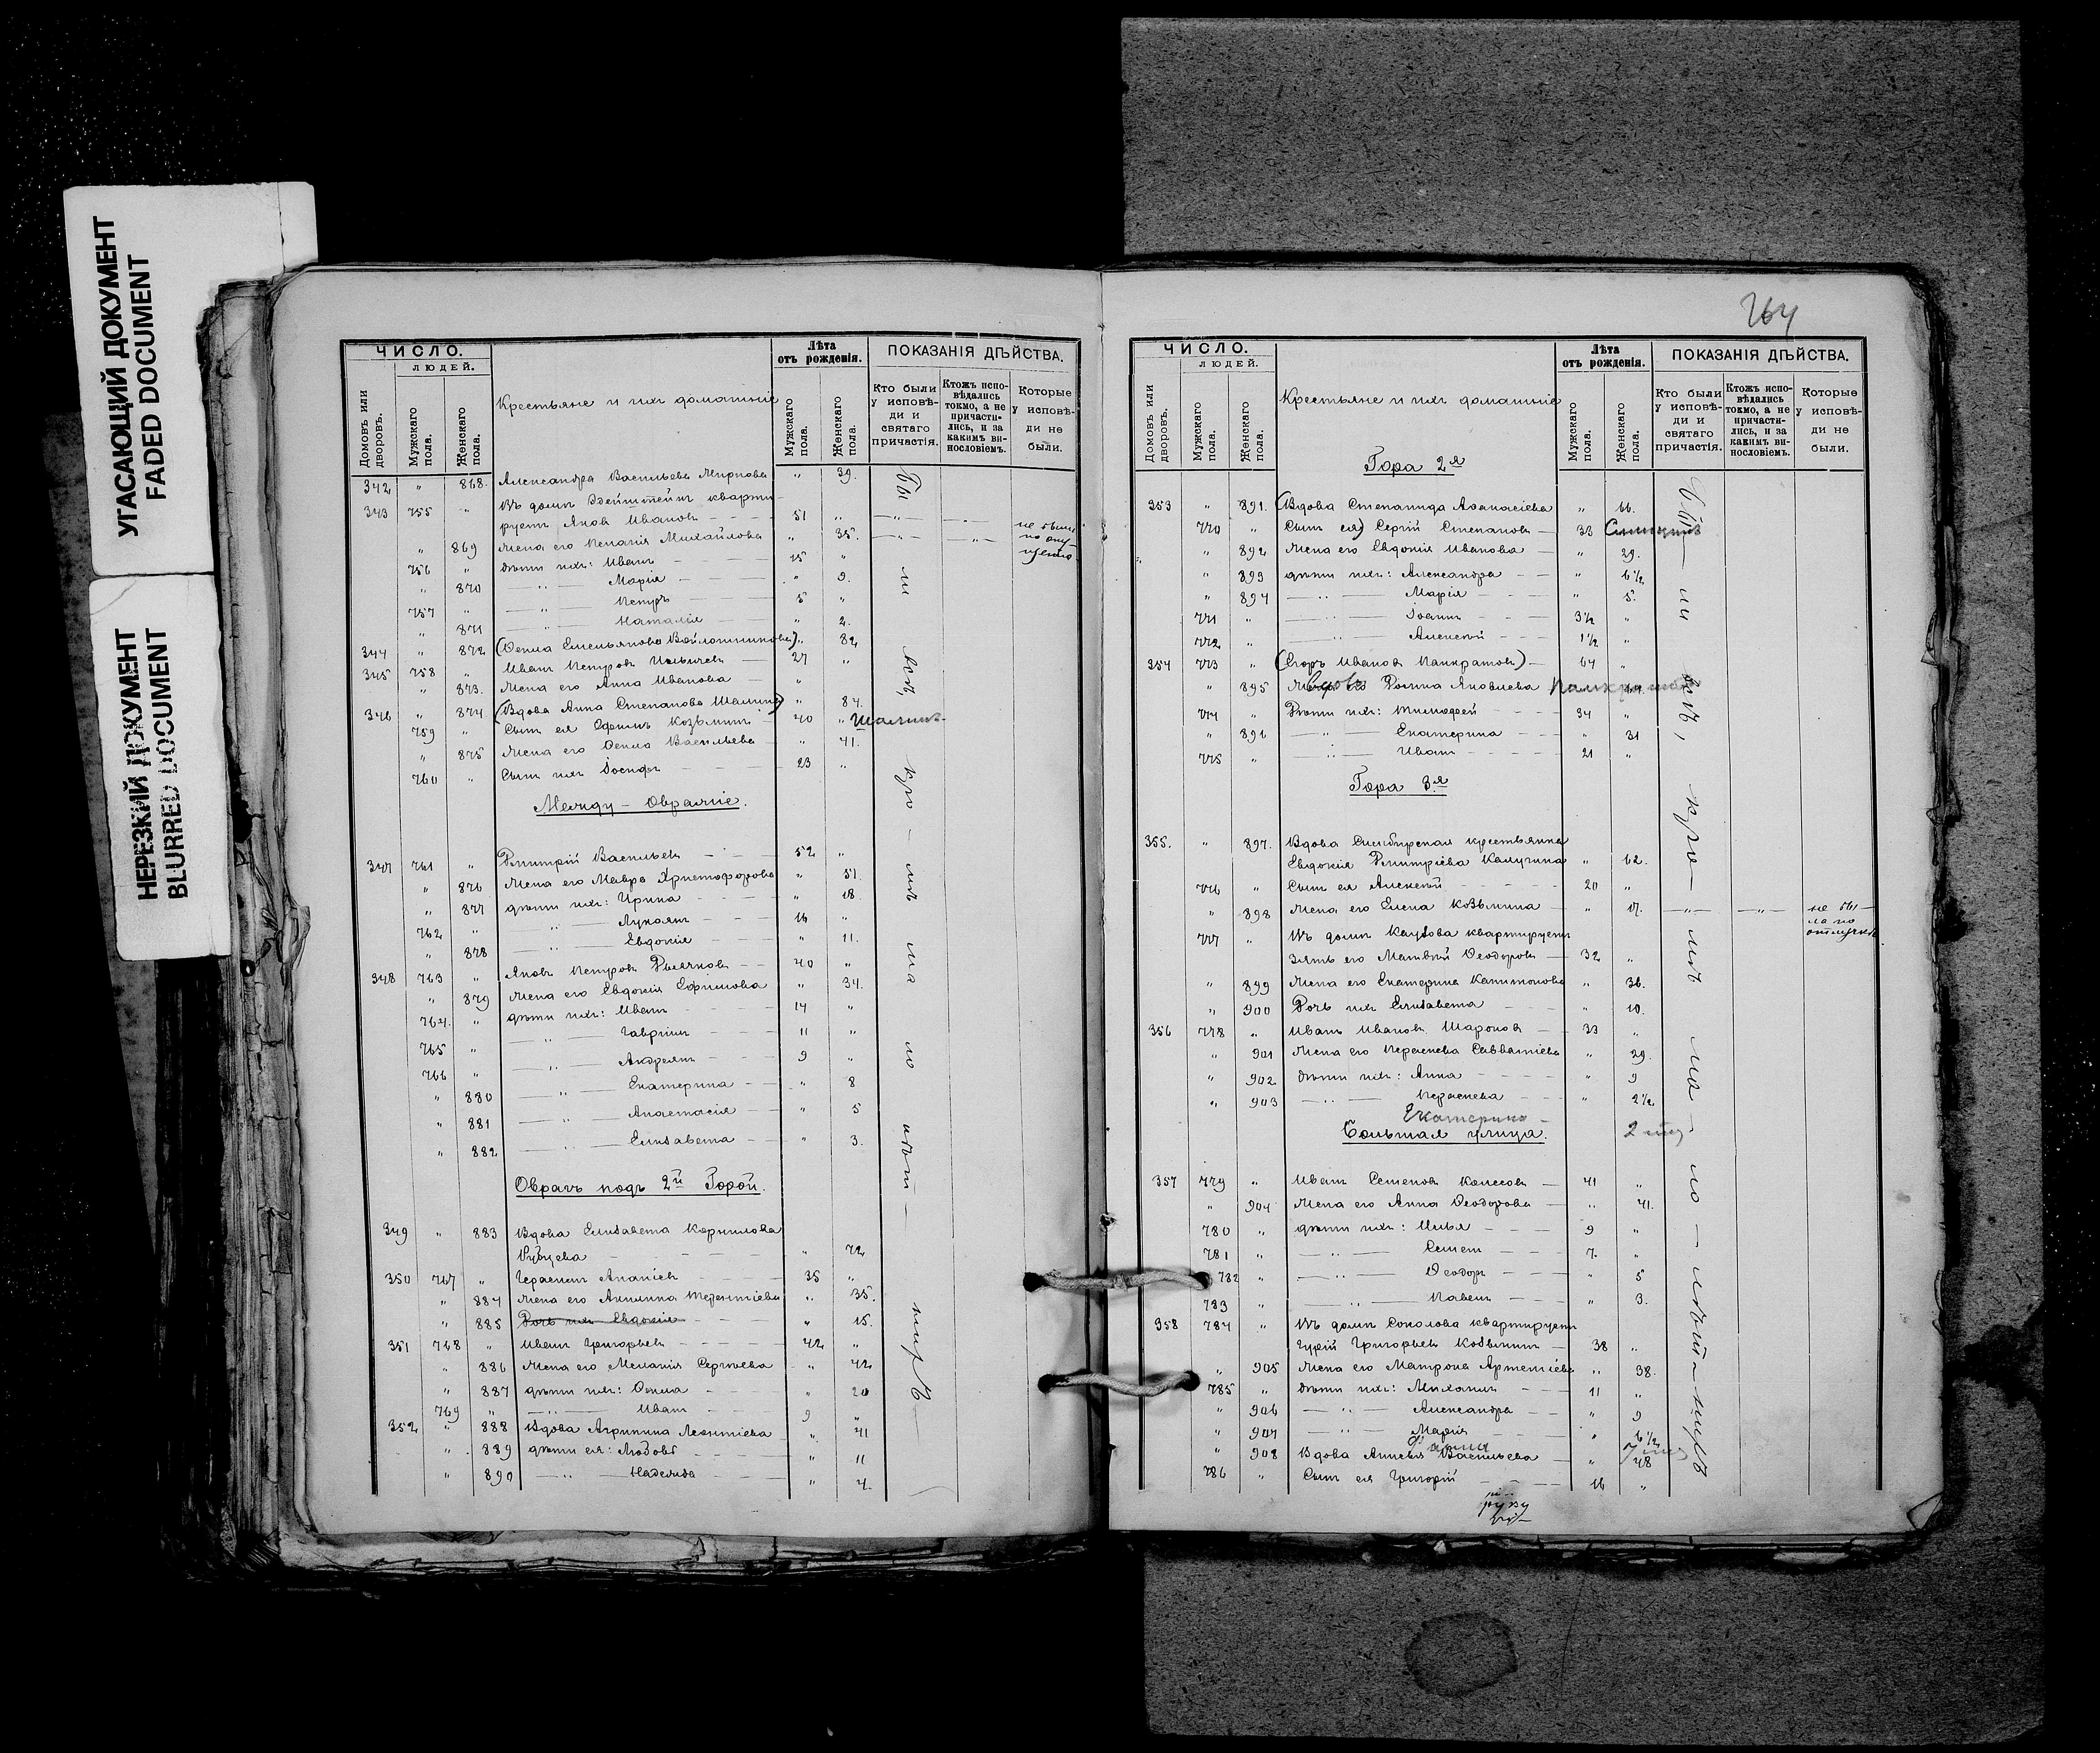 УГАСАЮЩИЙ ДОКУМЕНТ
FADED DOCUMENT
НЕРЕЗКИЙ ДОКУМЕНТ
BLURRED DOCUMENT
ЧИСЛО.
ЛЮДЕЙ.
Домовъ или дворовъ.
Мужскаго пола.
Женскаго пола.
Крестьяне и ихъ домашніе
Лѣта отъ рожденія.
Мужскаго пола.
Женскаго пола.
ПОКАЗАНІЯ ДѢЙСТВА.
Кто были у исповѣди и святаго причастія.
Ктожъ исповѣдались токмо, а не причастились, и за какимъ винословіемъ.
Которые у исповѣди не были.
342 " 868. Александра Васильева " 39.
343 755 " Въ домѣ квартируетъ Яковъ Ивановъ 51 "
" 869 Жена его Пелагія Михайлова " 35. не были по опущенію
756 " дѣти ихъ: Иванъ 15 "
" 870 Марія " 9.
757 " Петръ 5 "
" 871 Наталія " 2.
344 " 872 (Ѳекла Емельянова Войлошникова) " 82
345 758 " Иванъ Петровъ 27 "
" 873. Жена его Анна Иванова "
346 " 874 (Вдова Анна Степанова Шалина) " 84.
759 " Сынъ ея Ефимъ Козьминъ 40 " Шалинъ
" 875 Жена его Ѳекла Васильева " 41.
760 " Сынъ ихъ Іосифъ 23 "
Между-Овражіе.
347 761 " Димитрій Васильевъ 52 "
" 876 Жена его Мавра Христофорова " 51.
" 877 дѣти ихъ: Ирина " 18.
762 " Лукіянъ 16 "
" 878 Евдокія " 11.
348 763 " Яковъ Петровъ 40 "
" 879 Жена его Евдокія Ефимова " 34.
764. " дѣти ихъ: Иванъ 14 "
765 " Гавріилъ 11 "
766 " Андреянъ 9 "
" 880 Екатерина " 8
" 881 Анастасія " 5
" 882 Елисавета " 3.
Оврагъ подъ 2й Горой.
349 " 883 Вдова Елисавета Корнилова
" 72
350 767 " Герасимъ Ананіевъ 35 "
" 884 Жена его Акилина Терентіева " 35.
" 885 Дочь ихъ Евдокія " 15.
351 768 " Иванъ Григорьевъ 42 "
" 886 Жена его Меланія Сергѣева " 42
" 887 дѣти ихъ: Ѳекла " 20
769 " Иванъ 9 "
352 " 888 Вдова Агрипина Леонтіева " 41
" 889 дѣти ея: Любовь " 11
" 890 Надежда " 4.
Были всѣ, кромѣ малолѣтнихъ
764
ЧИСЛО.
ЛЮДЕЙ.
Домовъ или дворовъ.
Мужскаго пола.
Женскаго пола.
Крестьяне и ихъ домашніе
Лѣта отъ рожденія.
Мужскаго пола.
Женскаго пола.
ПОКАЗАНІЯ ДѢЙСТВА.
Кто были у исповѣди и святаго причастія.
Ктожъ исповѣдались токмо, а не причастились, и за какимъ винословіемъ.
Которые у исповѣди не были.
Гора 2я
353 " 891. (Вдова Степанида Аѳанасіева " 66.
770 " Сынъ ея) Сергій Степановъ 33
" 892 Жена его Евдокія Иванова " 29.
" 893 дѣти ихъ: Александра " 6½
" 894 Марія " 5.
771 " Іоаннъ 3½ "
772 " Алексѣй 1½ "
354 773 " (Егоръ Ивановъ Панкратовъ) 64 "
" 895 Вдова Яковлева
774 " Дѣти ихъ: Тимоѳей 34 "
" 896 Екатерина " 31
775 " Иванъ 21 "
Гора 3я
355. " 897. Вдова Симбирская крестьянка
Евдокія Димитріева Калугина " 62.
776 " Сынъ ея Алексѣй 20 "
" 898 Жена его Елена Козьмина " 17. не была по отлучкѣ
777 " Въ домѣ квартируетъ
зять его Матвѣй Ѳеодоровъ 32 "
" 899 Жена его Екатерина Капитонова " 36.
" 900 Дочь ихъ Елисавета " 10.
356 778 " Иванъ Ивановъ Шароновъ 33 "
" 901 Жена его Параскева Савватіева " 29.
" 902 дѣти ихъ: Анна " 9
" 903 Параскева " 2½
Екатерина
Большая улица.
357 779 " Иванъ Семеновъ 41 "
" 904 Жена его Анна Ѳеодорова " 41.
780 " дѣти ихъ: Илья 9 "
781 " Семенъ 7. "
782 " Ѳеодоръ " 5
783 " Павелъ " 3.
358 784 " Въ домѣ Соколова квартируетъ
Гурій Григорьевъ 38 "
" 905 Жена его Матрона Артеміева " 38.
785 " дѣти ихъ: Михаилъ 11 "
" 906 Александра " 9
" 907 Марія " 6½
" 908 Вдова Васильева " 48
786 " Сынъ ея Григорій 16 "
Были всѣ, кромѣ малолѣтнихъ